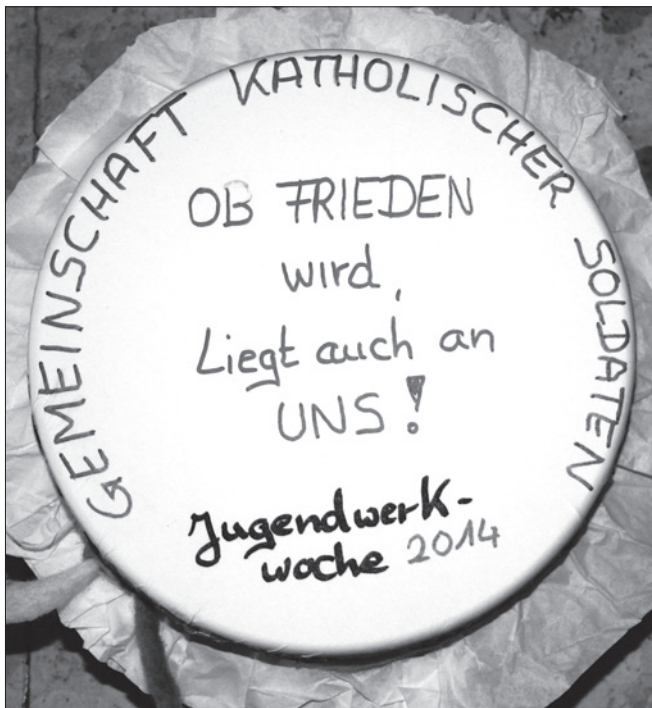 GEMEINSCHAFT KATHOLISCHER SOLDATEN
OB FRIEDEN
wird,
Liegt auch an
UNS!
Jugendwerk-
woche 2014